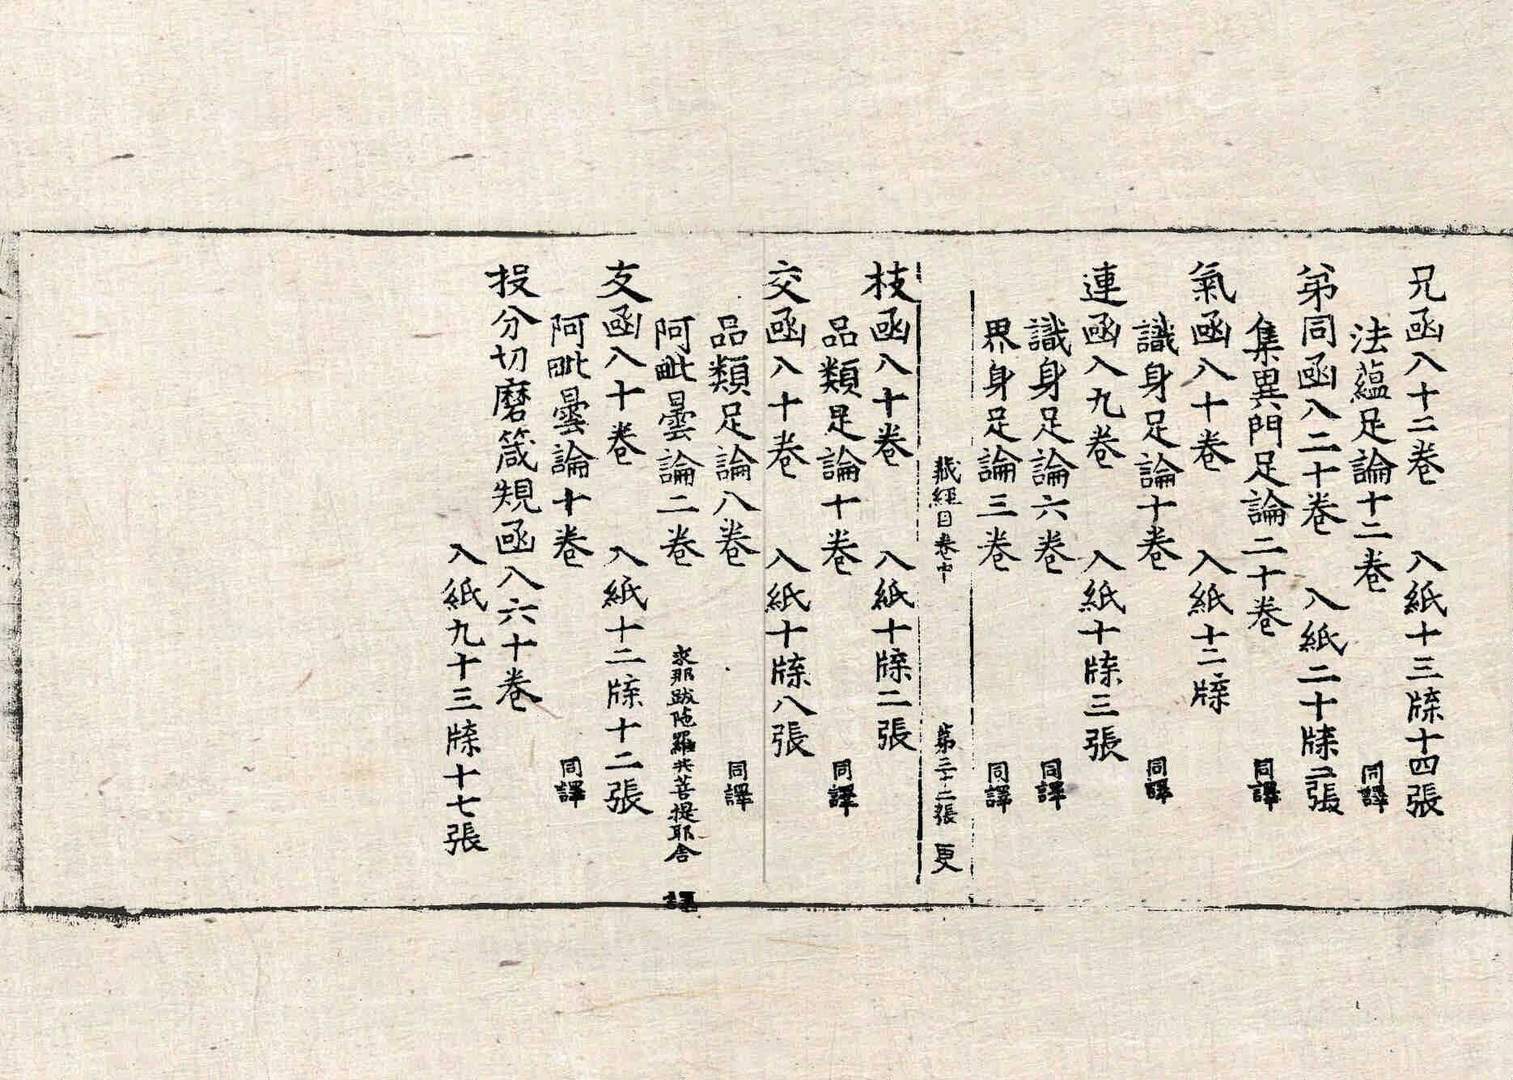 兄函入十二卷 入紙十三牒十四張
法蘊足論十二卷 同譯
苐同函入二十卷 入紙二十牒二張
集異門足論二十卷 同譯
氣函入十卷 入紙十二牒
識身足論十卷 同譯
連函入九卷 入紙十牒三張
識身足論六卷 同譯
界身足論三卷 同譯
藏經目卷中 第三十二張 更
枝函入十卷 入紙十牒二張
品類足論十卷 同譯
交函入十卷 入紙十牒八張
品類足論八卷 同譯
阿毗曇論二卷 求那跋陁羅共菩提耶舍譯
友函入十卷 入紙十二牒十二張
阿毗曇論十卷 同譯
投分切磨箴䂓函入六十卷
入紙九十三牒十七張